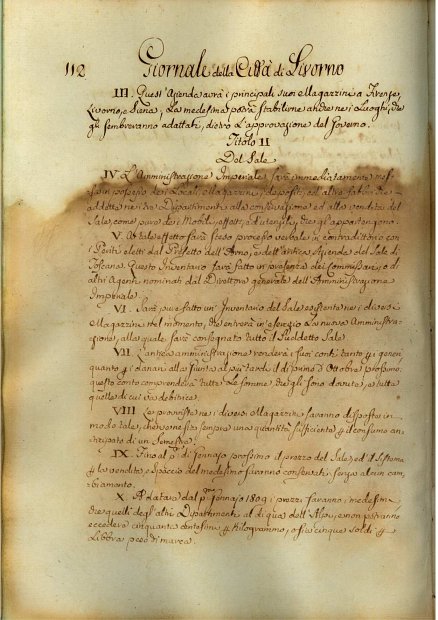 112 Giornale della Città di Livorno
III. Quest'Azienda avrà i principali suoi Magazzini a Firenze,
Livorno, e Siena, La medesima potrà stabilirne anche nei Luoghi, che
gli sembreranno adattati, dietro L'approvazione del Governo.
Titolo II
Del Sale
IV. L'Amministrazione Imperiale sarà immediatamente mes-
sa in possesso dei Locali, Magazzini, depositi, ed altre fabbriche
addette nei tre Dipartimenti alla conservazione ed alla vendita del
Sale, come pure dei Mobili, effetti, ed utensili, che gli appartengono.
V. A tale effetto sarà steso processo verbale in contradittorio con
i Periti eletti dal Prefetto dell'Arno, e dell'antica Azienda del Sale di
Toscana. Questo Inventario sarà fatto in presenza dei Commissari, o di
altri Agenti nominati dal Direttore generale dell'Amministrazione
Imperiale.
VI. Sarà pure fatto un Inventario del Sale esistente nei diversi
Magazzini nel momento, che entrerà in esercizio La nuova Amministra-
zione, alla quale sarà consegnato tutto il suddetto Sale
VII. L'antica amministrazione renderà i suoi conti tanto in generi
quanto in danari alla Giunta al più tardi il di primo d'Ottobre prossimo:
questo conto comprenderà tutte Le somme, che gli sono dovute, e tutte
quelle di cui va debitrice.
VIII. Le provviste nei diversi Magazzini saranno disposte in
modo tale, che ve ne sia sempre una quantità sufficiente p il consumo an-
ticipato di un Semestre.
IX. Fino al p.º di Gennajo prossimo il prezzo del Sale, ed il sistema
p la vendita, e spaccio del medesimo saranno conservati senza alcun cam-
biamento.
X. A datare dal p.º Gennajo 1809 i prezzi saranno i medesimi,
che quelli degl'altri Dipartimenti al di qua dell'Alpi, e non potranno
eccedere cinquanta centesimi p kilogrammo, o sia cinque soldi p
Libbra peso di marca.